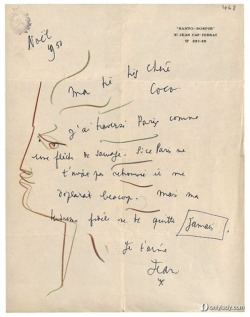 468
"SANTO-SOSPIR"
ST JEAN CAP FERRAT
Noël
1950
ma très très chère
Coco
j'ai traversé Paris comme
une flèche de sauvage. Si ce Paris ne
t'avait pas retrouvé il me
déplairait beaucoup. Mais ma
tendresse fidèle ne te quitte
Jamais
Je t'aime
Jean
onlylady.com